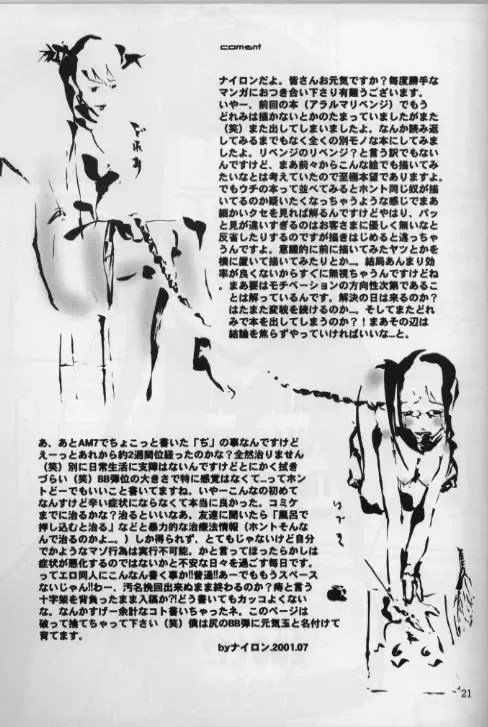 coment
ナイロンだよ。皆さんお元気ですか？毎度勝手な
マンガにおつき合い下さり有難うございます。
いやー、前回の本（アラルマリベンジ）でもう
どれみは描かないとかのたまっていましたがまた
（笑）また出してしまいましたよ。なんか読み返
してみるまでもなく全くの別モノな本にしてみま
したよ。リベンジのリベンジ？と言う訳でもない
んですけど、まあ前々からこんな絵でも描いてみ
たいなとは考えていたので至極本望でありますよ。
でもウチの本って並べてみるとホント同じ奴が描
いてるのか疑いたくなっちゃうような感じでまあ
細かいクセを見れば解るんですけどやはり、パッ
と見が違いすぎるのはお客さまに優しく無いなと
反省したりするのですが描きはじめると違っちゃ
うんですよ。意識的に前に描いてみたヤツとかを
横に置いて描いてみたりとか…。結局あんまり効
率が良くないからすぐに無視ちゃうんですけどね
。まあ要はモチベーションの方向性次第であるこ
とは解っているんです。解決の日は来るのか？
はたまた変戦を続けるのか…。そしてまたどれ
みで本を出してしまうのか？！まあその辺は
結論を焦らずやっていければいいな…と。
どれみ
あ、あとAM7でちょこっと書いた「ぢ」の事なんですけど
えーっとあれから約2週間位経ったのかな？全然治りません
（笑）別に日常生活に支障はないんですけどとにかく拭き
づらい（笑）BB弾位の大きさで特に感覚はなくて…ってホン
トどーでもいいこと書いてますね。いやーこんなの初めて
なんですけど辛い症状にならなくて本当に良かった。コミケ
までに治るかな？治るといいなあ。友達に聞いたら「風呂で
押し込むと治る」などと暴力的な治療法情報（ホントそんな
んで治るのかよ…。）しか得られず、とてもじゃないけど自分
でかようなマゾ行為は実行不可能。かと言ってほったらかしは
症状が悪化するのではないかと不安な日々を過ごす毎日です。
ってエロ同人にこんなん書く事か!!普通!!あーでももうスペース
ないじゃん!!わー、汚名挽回出来ぬまま終わるのか？痔と言う
十字架を背負ったまま入稿か?!どう書いてもカッコよくない
な。なんかすげー余計なコト書いちゃったネ。このページは
破って捨てちゃって下さい（笑）僕は尻のBB弾に元気玉と名付けて
育てます。
byナイロン.2001.07
はづき
21